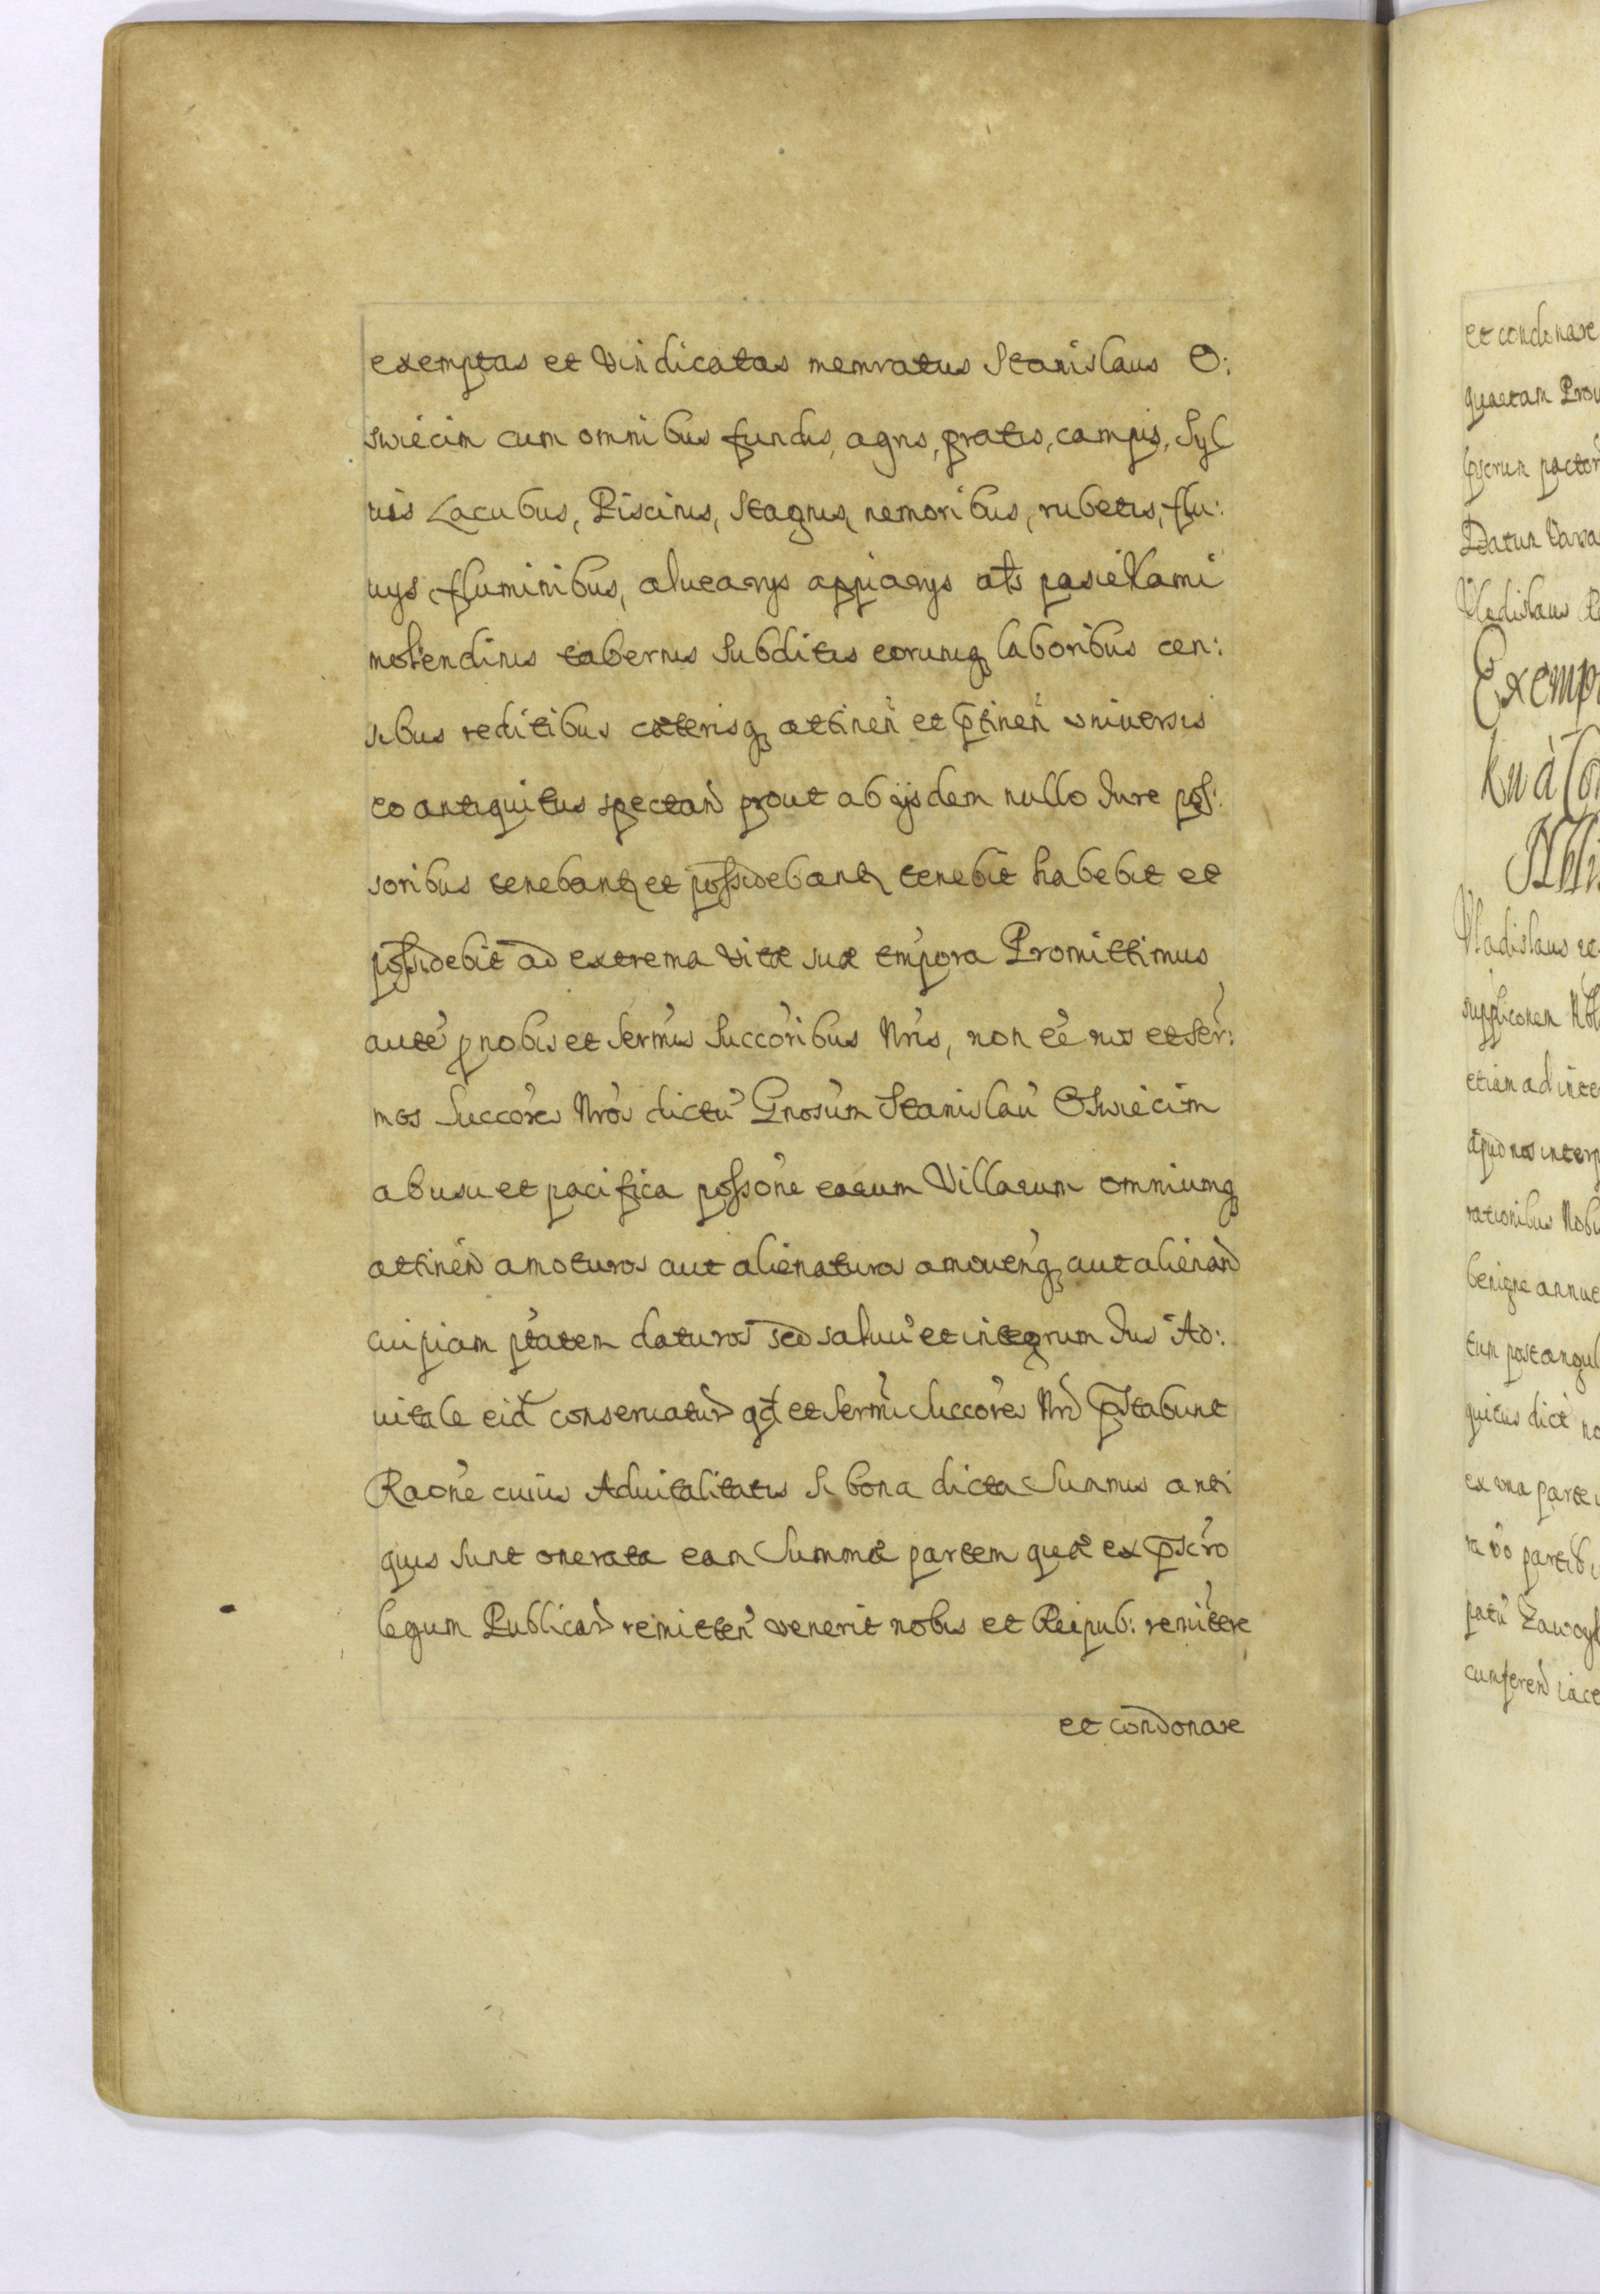 exemptas et Vindicatas memratus Stanislaus O:
swiecim cum omnibus fundis, agris, pratis, campis, Syl
uis Lacubus, Piscinis, Stagnis, nemoribus, rubetis, flu:
uys fluminibus, aluearys appiarys als pasiekami
molendinis tabernis Subditis eorumq laboribus cen:
sibus reditibus cæterisq attinen et ptinen vniuersis
eo antiquitus spectan prout ab ijsdem nullo Jure pos:
soribus tenebantq et possidebantq tenebit habebit et
possidebit ad extrema Vitæ suæ tempora Promittimus
aute p nobis et Sermis Succoribus Nris, non eê nos et Ser:
mos Succores Nros dictu Gnosum Stanislau Oswiecim
ab usu et pacifica possone earum Villarum omniumq
attinen amoturos aut alienaturos amouenq aut alienan
cuipiam ptatem daturos sed saluu et integrum Jus Ad:
uitale eid conseruatur qd et Sermi Succores Nri pstabunt
Raone cuius Aduitalitatis Si bona dicta Summis anti
quis sunt onerata eam Summæ partem quæ ex pscro
legum Publicar remitten venerit nobis et Reipub: remittere
et condonare
et condonare
quætam
pactor
Datum
Vladislaus
Exemp
Vladislaus
etiam ad
apud nos
rationibus
benigne annue
tum post
quitus dict no
ex vna parte
ra vo
patu
cumferen iace